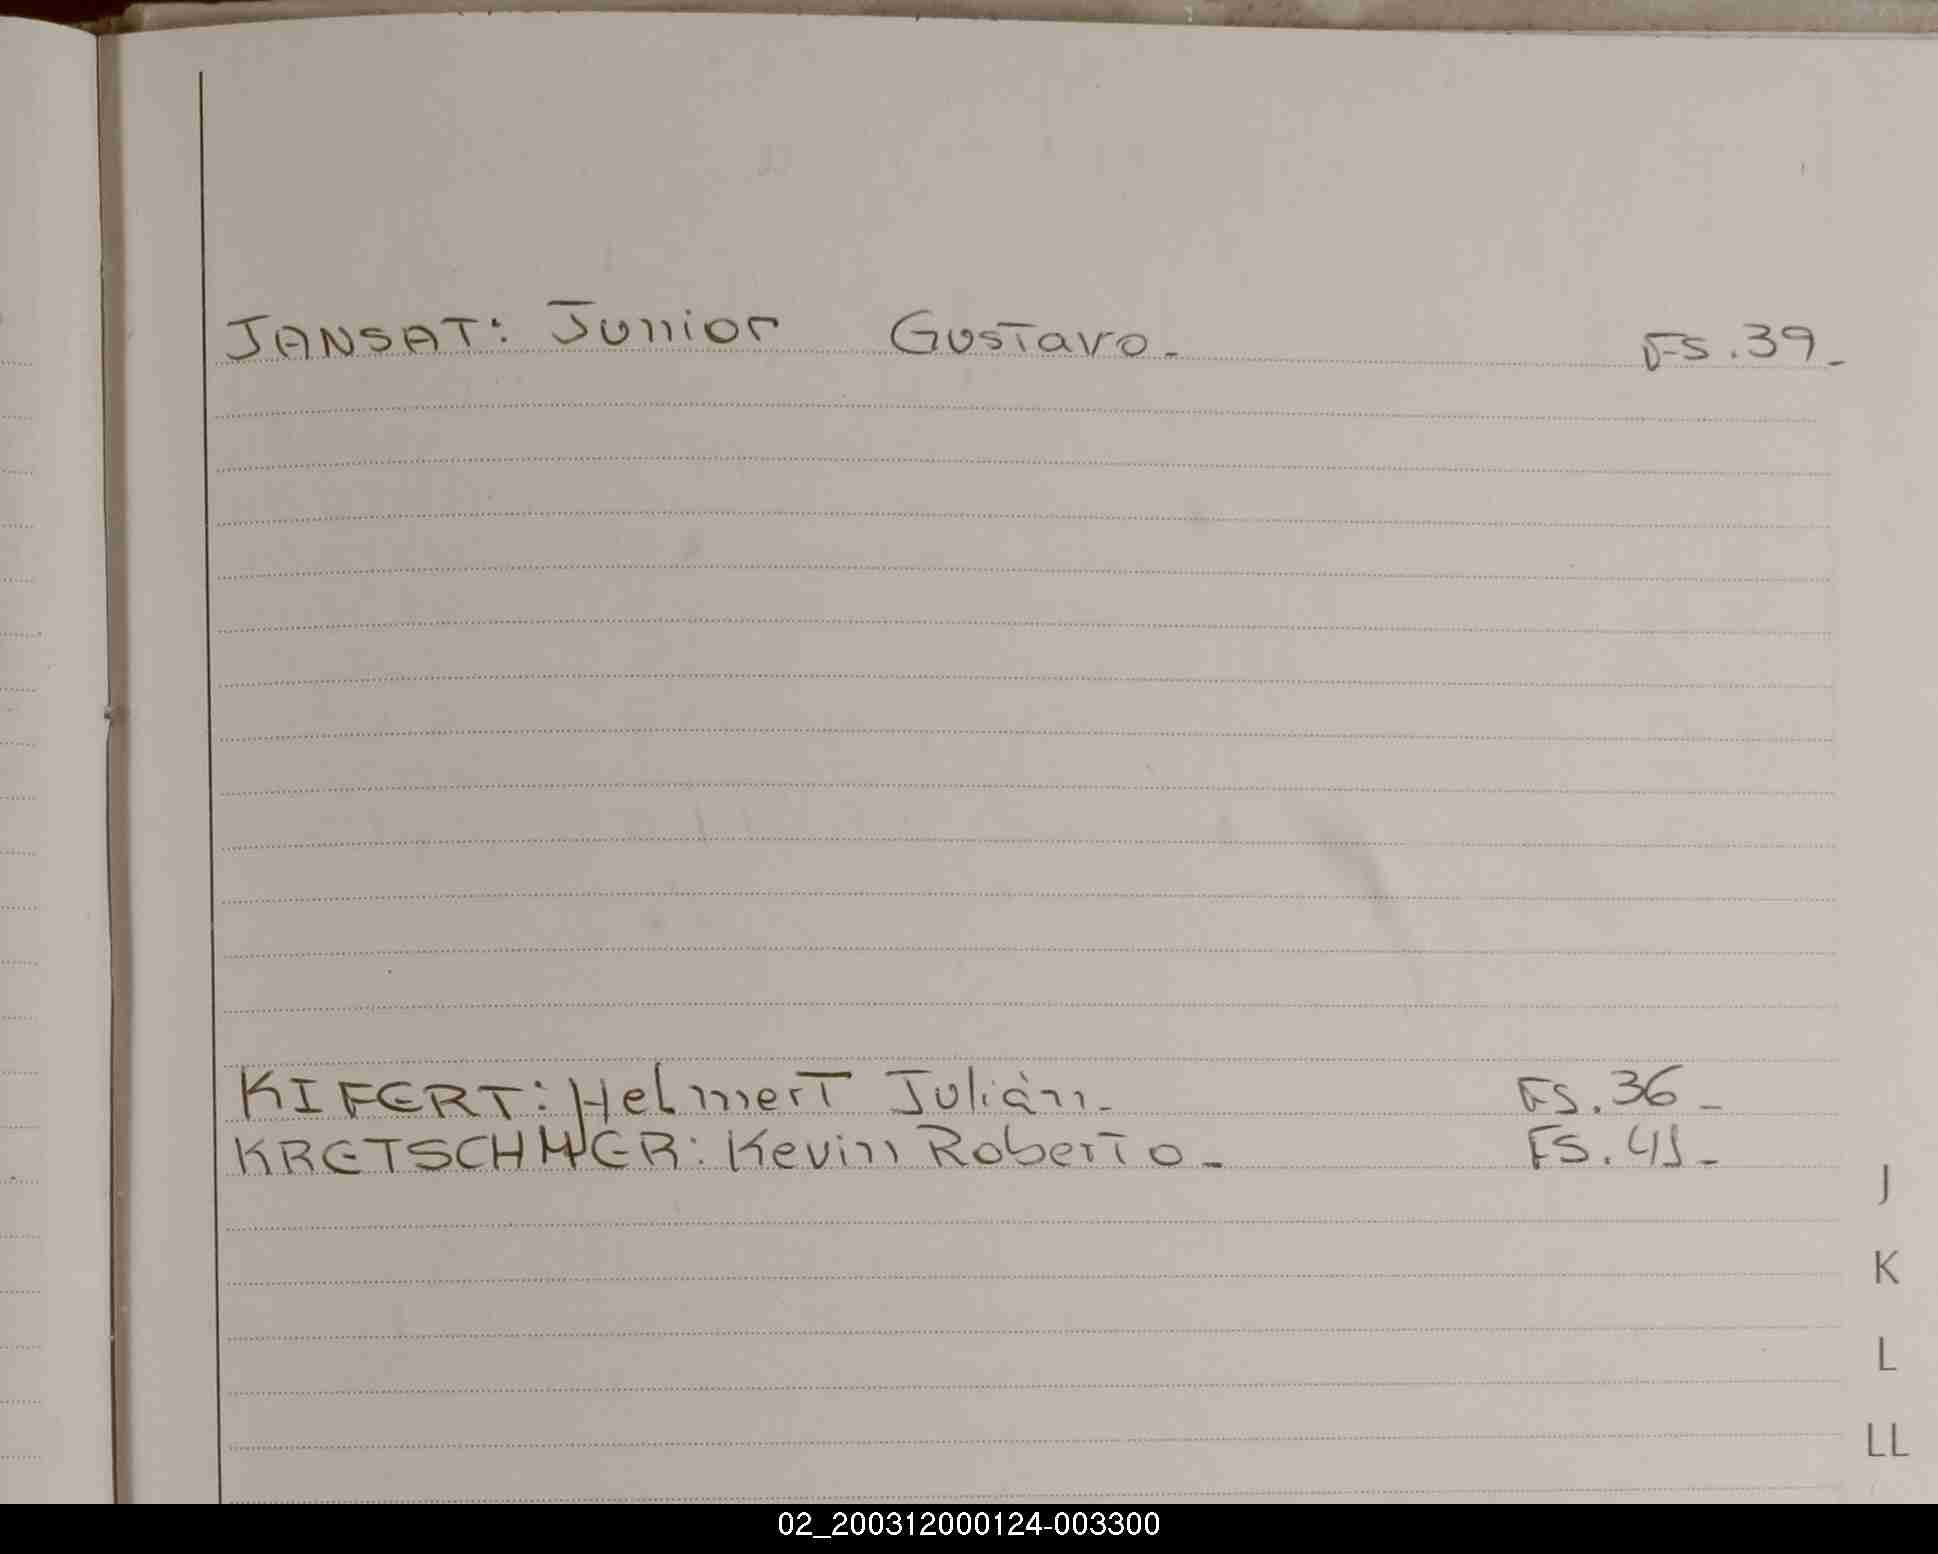 JANSAT: Junior Gustavo.- Fs.39-
KIFERT: Helmert Julián.- Fs.36-
KRETSCHMER: Kevin Roberto.- Fs.41-
J
K
L
LL
02_200312000124-003300